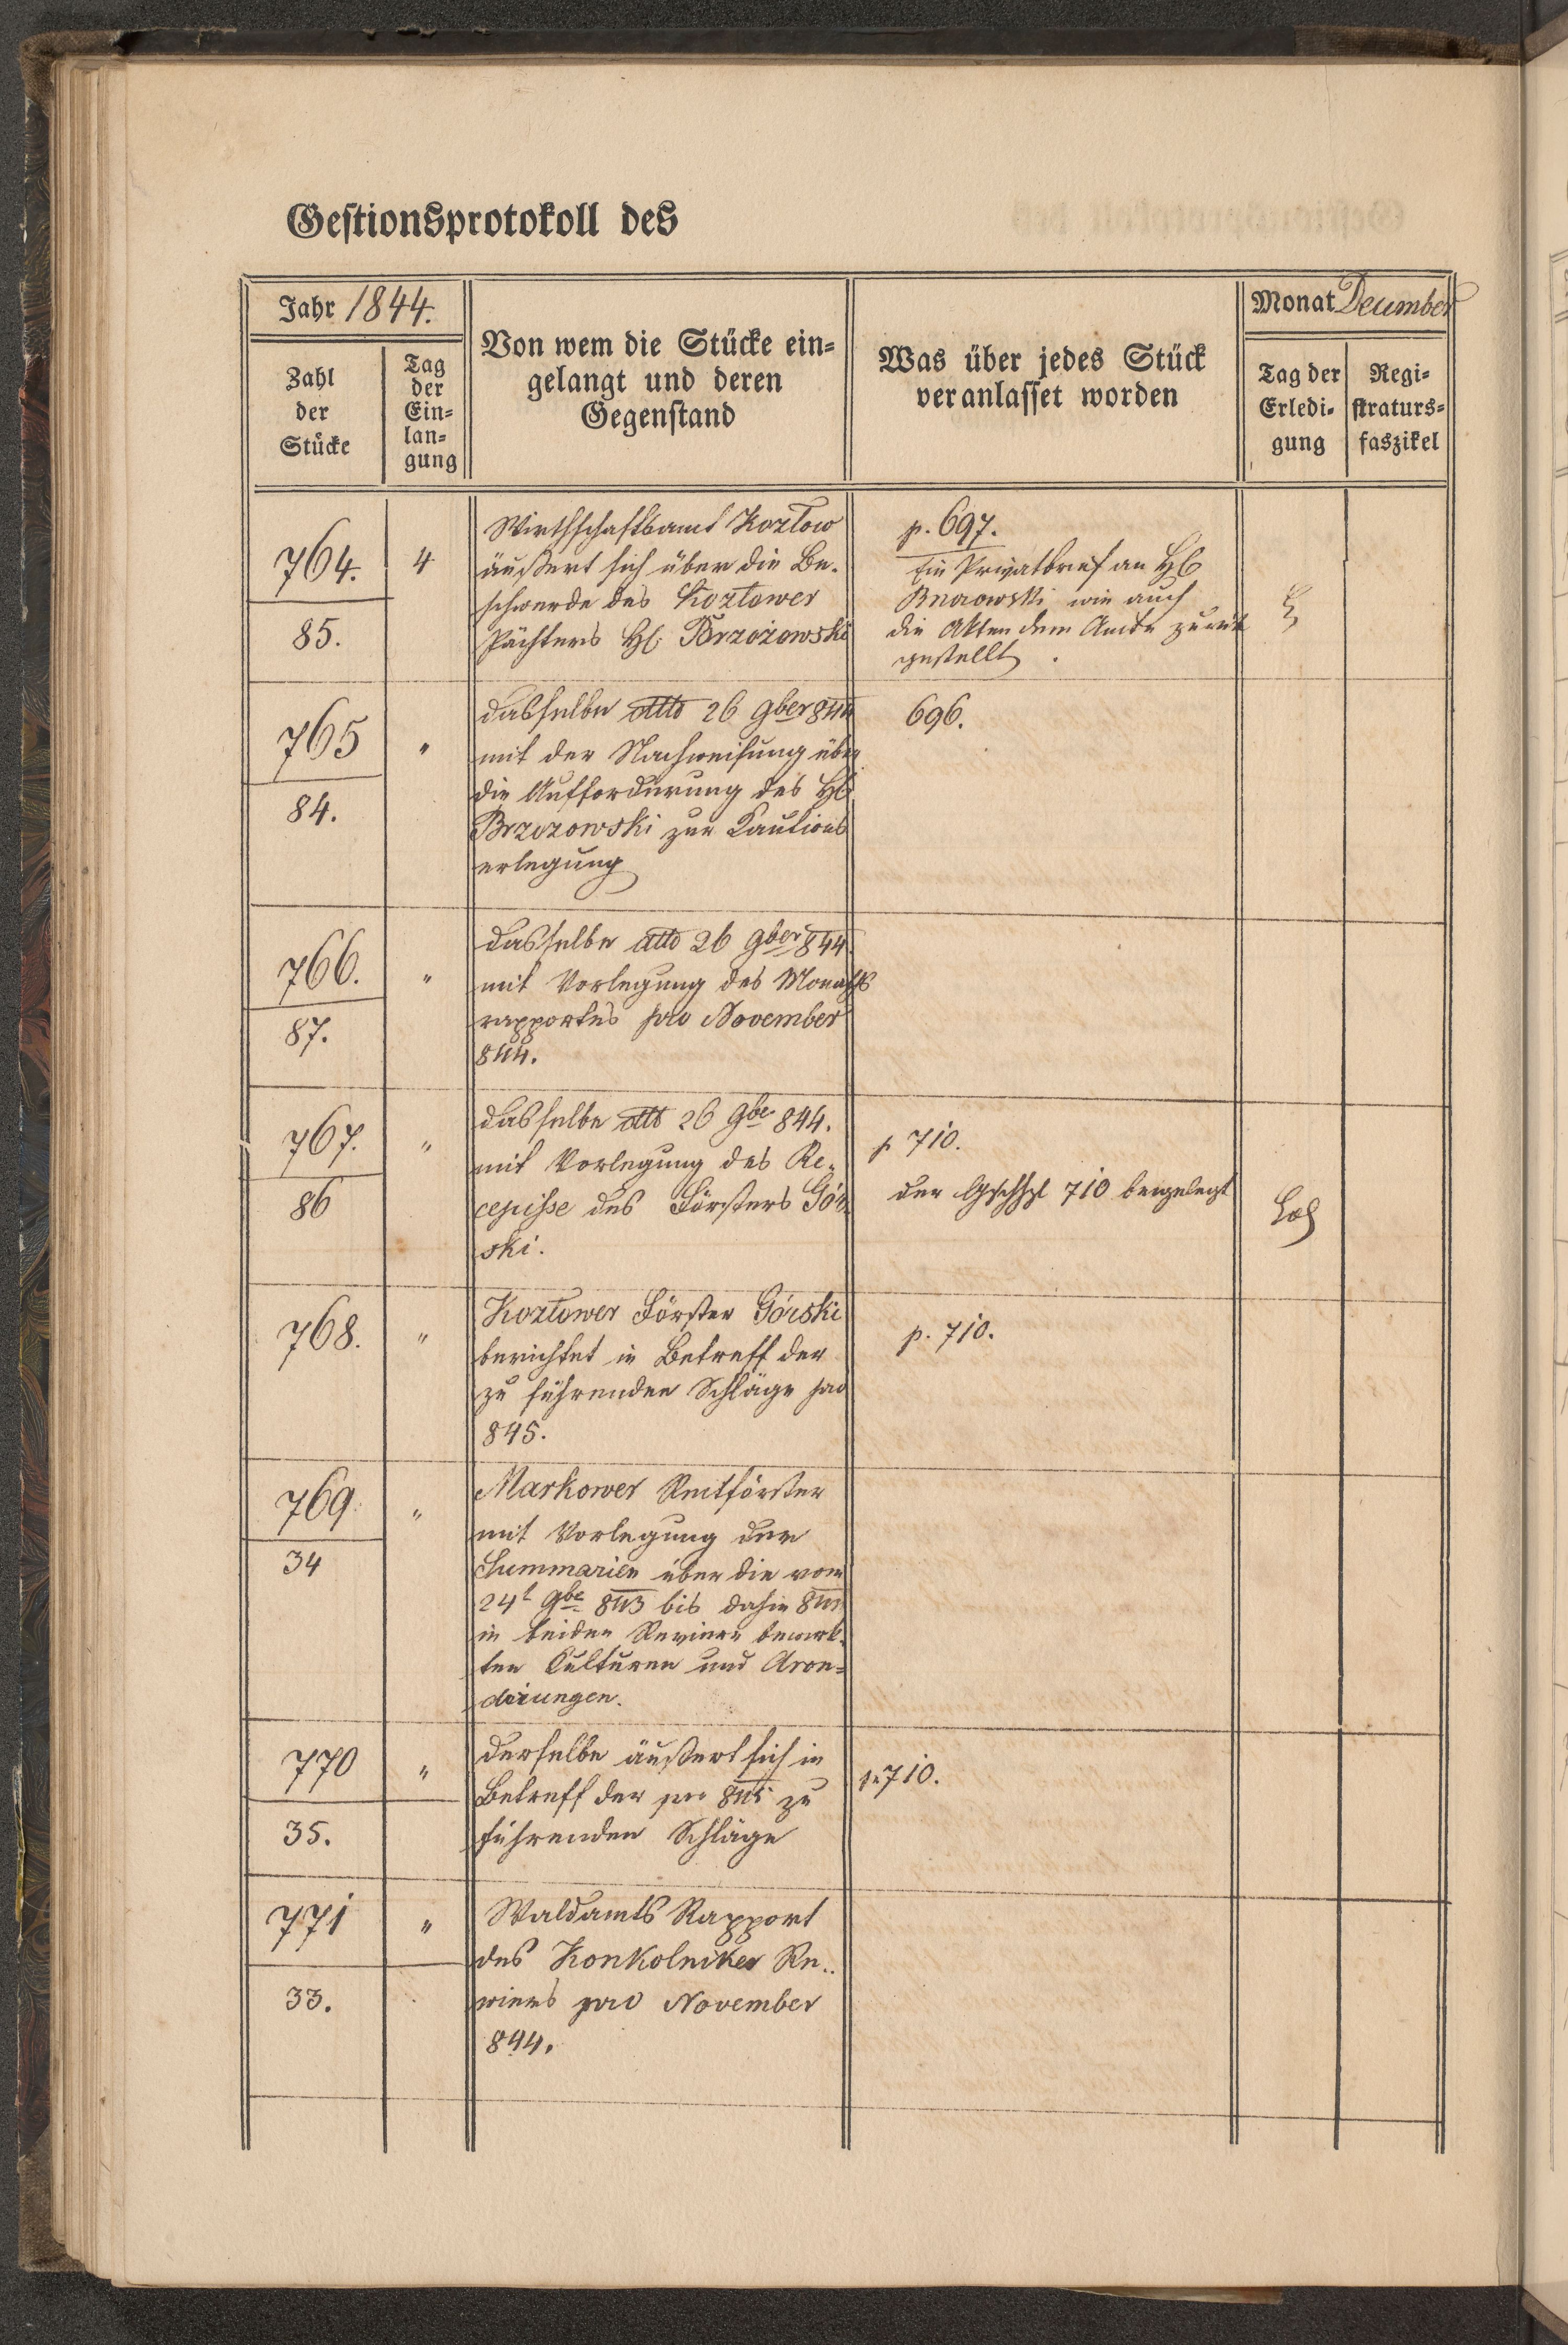 Gestionsprotokoll des
Jahr 1844.
Monat December
Zahl
der
Stücke
Tag
der
Ein-
lan-
gung
Von wem die Stücke ein-
gelangt und deren
Gegenstand
Was über jedes Stück
veranlasset worden
Tag der
Erledi-
gung
Regi-
straturs-
faszikel
764.
85.
4
Wirthschaftsamt Kozlow
äußert sich über die Be-
schwerde des Kozlower
Pächters H: Brzozowski
p. 697.
Ein Privatbrief an H
wie auch
die Akten dem Amte zurük
gestellt.
765
84.
"
dasselbe dtto 26 9ber 844
mit der Nachweisung über
die Aufforderung des H
Brzozowski zur Cautions
erlegung
696.
766.
87.
"
dasselbe dtto 26 9ber 844.
mit Vorlegung des Monaths
rapportes pro November
844.
767.
86
"
dasselbe dtto 26 9be 844.
mit Vorlegung des Re-
cepisse des Försters Gór
ski.
p 710.
der 710 beigelegt
768.
"
Kozlower Förster Górski
berichtet in Betreff der
zu führenden Schläge pro
845.
p. 710.
769.
34
"
Markower Reitförster
mit Vorlegung der
Summarien über die vom
24t 9be 843 bis dahin 844
in beiden Revieren bewirk-
ten Culturen und Aron-
dirungen.
770
35.
"
derselbe äußert sich in
Betreff der pro 845 zu
führenden Schläge
p. 710.
771
33.
"
Waldamts Rapport
des Konkolniker Re-
viers pro November
844.